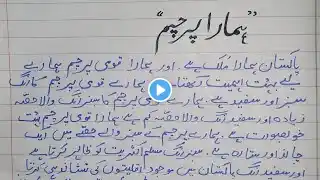 "ہمارا پرچم"
پاکستان ہمارا ملک ہے۔ اور ہمارا قومی پرچم ہمارے
لیے بہت اہمیت رکھتا ہے۔ ہمارے قومی پرچم کا رنگ
سبز اور سفید ہے۔ ہمارے قومی پرچم کا سبز رنگ والا حصّہ
زیادہ اور سفید رنگ والا حصّہ کم ہے ہمارا قومی پرچم بہت
خوبصورت ہے۔ ہمارے پرچم کے سبز والے حصّے میں ایک
چاند اور ستارہ ہے۔ سبز رنگ مسلم اکثریت کو ظاہر کرتا ہے
اور سفید رنگ پاکستان میں موجود اقلیتوں کی نشاندہی کرتا